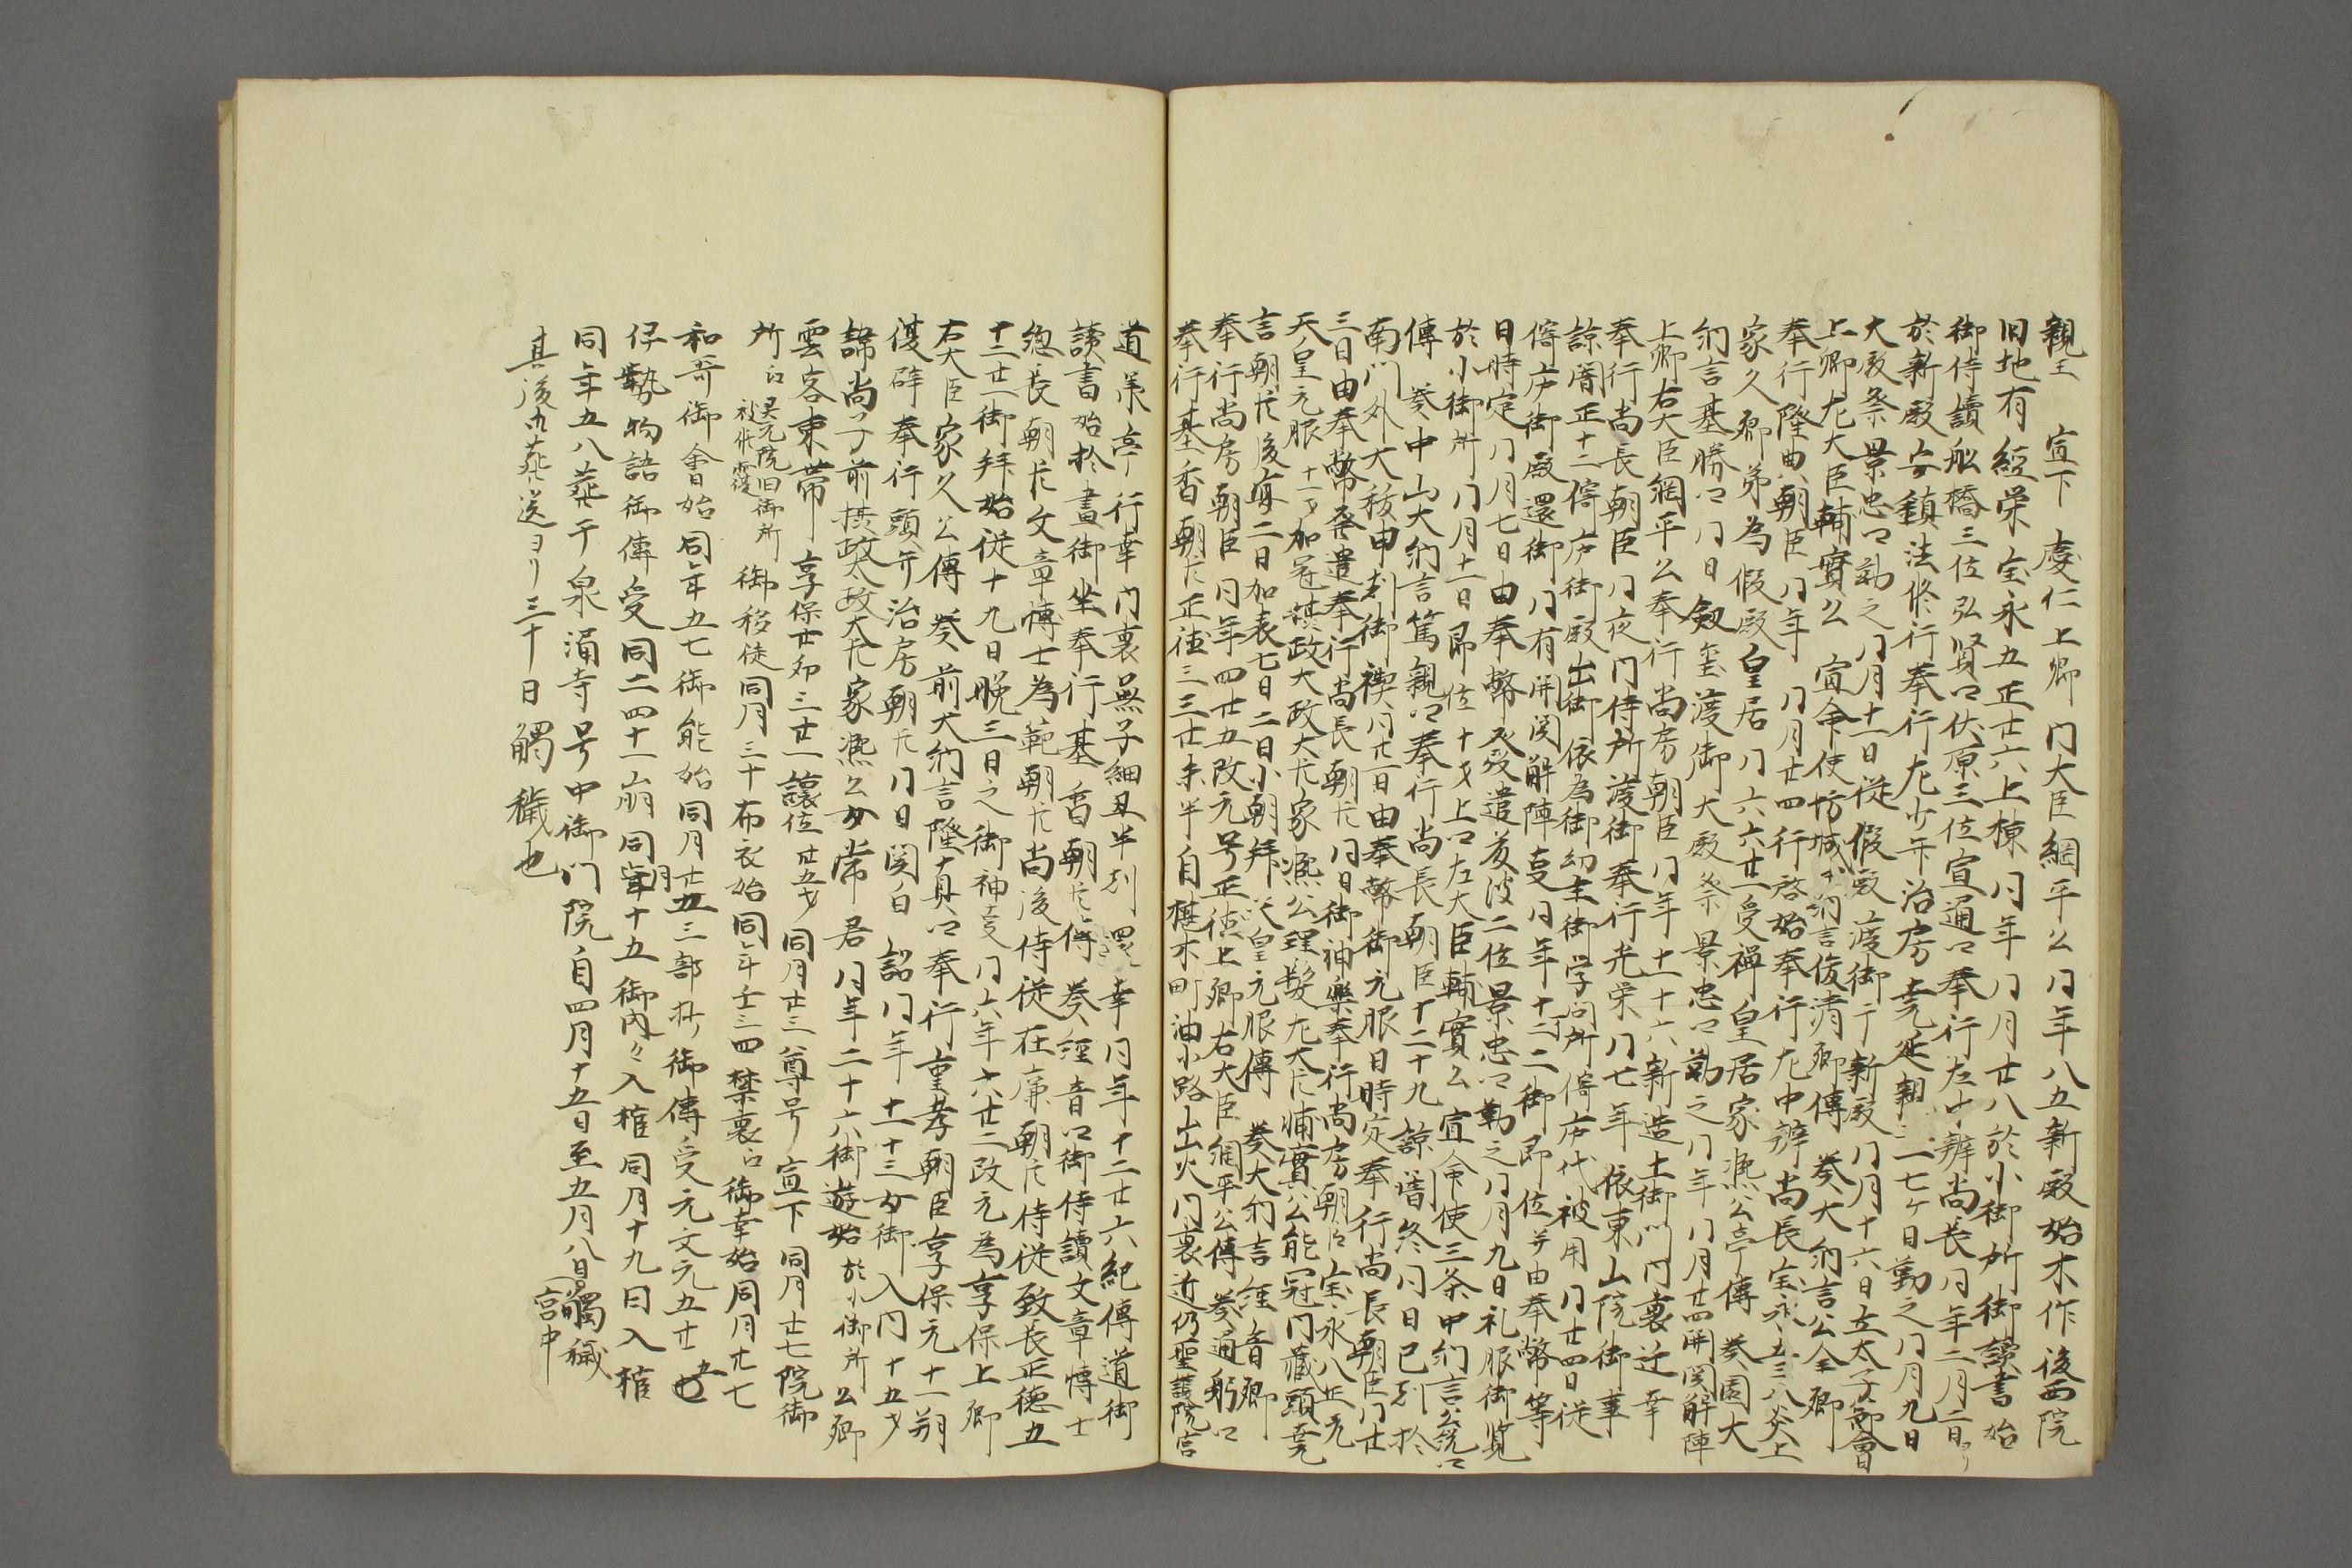 親王　宣下　慶仁上卿　内大臣綱平公同年八五新殿始木作後西院
旧地有　經栄宝永五正廿六上棟同年同月廿八於小御所御読書始
御侍讀舩橋三位弘賢卿伏原三位宣通卿奉行左中辨尚長同年二月二日ヨリ
於新殿安鎮法修行奉行左少弁治房堯延親王七ケ日勤之同月九日
大殿祭景忠卿勤之同月十一日従假殿渡御于新殿同月十六日立太子節會
上卿左大臣輔實公　宣命使坊城中納言俊清卿傳　奏大納言公全卿
奉行隆典朝臣同年　同月廿四行啓始奉行左中辨尚長宝永五三八炎上
家久卿第為假殿皇居同六六廿一受禅皇居家熈公亭傳　奏園大
納言基勝卿同日劔璽渡御大殿祭景忠卿勤之同年同月廿四開関解陣
上卿右大臣綱平公奉行尚房朝臣同年十一十六新造土御門内裏迁幸
奉行尚長朝臣同夜内侍所渡御奉行光栄同七年　依東山院御事
諒闇正十二倚庐御殿出御依為御幼主御学问所倚庐代被用同廿四日従
倚庐御殿還御同有開関解陣㕝同年十二御即位并由奉幣等
日時定同月七日由奉幣發遣爰波二位景忠卿勤之同月九日礼服御覧
於小御所同月十一日即位十才上卿左大臣輔實公　宣命使三条中納言公統卿
傳　奏中山大納言篤親卿奉行尚長朝臣十二十九諒闇終同日巳刻於
南門外大祓申刻御禊同廿一日由奉幣御元服日時定奉行尚長朝臣同廿
三日由奉幣發遣奉行尚長朝臣同日御神樂奉行尚房朝臣宝永八正元
天皇元服十一才加冠摂政太政大臣家熈公理髪左大臣輔實公能冠内蔵頭堯
言朝臣後宴二日加表七日二日小朝拜天皇元服傳　奏大納言經音卿
奉行尚房朝臣同年四廿五改元号正徳上卿右大臣綱平公傳　奏通躬卿
奉行基香朝臣正徳三三廿未半自椹木町油小路出火内裏近仍聖護院宮
道承亭　行幸内裏無子細丑半刻還幸同年十二廿六紀傳道御
讀書始於晝御坐奉行基香朝臣傳　奏經音卿御侍讀文章博士
惣長朝臣文章博士為範朝臣尚復侍従在廉朝臣侍従致長正徳五
十二廿一御拜始従十九日晩三日之御神事同六年六廿二改元為享保上卿
右大臣家久公傳　奏前大納言隆真卿奉行重孝朝臣享保元十一朔
復辟奉行頭弁治房朝臣同日関白　詔同年十一十三女御入内十五才
諱尚子前摂政太政大臣家熈公女常君同年二十六御遊始於小御所公卿
雲客束帶　享保廿卯三廿一讓位廿五才同月廿三尊号宣下同月廿七院御
所江霊元院旧御所被准後御移徒同月三十布衣始同年壬三四禁裏江御幸始同月廿七
和哥御會始同年五七御能始同月廿五三部抄御傳受元文元五廿五
伊勢物語御傳受同二四十一崩同月十五御内々入棺同月十九日入棺
同年五八葬于泉涌寺号中御門院自四月十五日至五月八日宮中觸穢
其後御葬送ヨリ三十日觸穢也